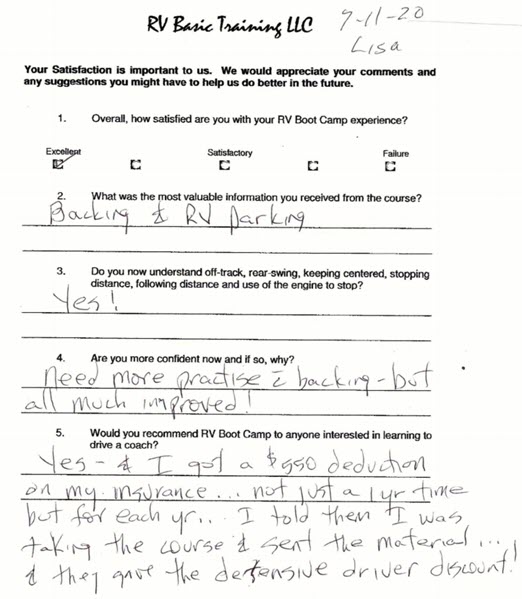 RV Basic Training LLC
9-11-20
Lisa
Your Satisfaction is important to us. We would appreciate your comments and
any suggestions you might have to help us do better in the future.
1. Overall, how satisfied are you with your RV Boot Camp experience?
Excellent Satisfactory Failure
2. What was the most valuable information you received from the course?
Backing & RV Parking
3. Do you now understand off-track, rear-swing, keeping centered, stopping
distance, following distance and use of the engine to stop?
Yes!
4. Are you more confident now and if so, why?
Need more practise c̄ backing - but
all much improved!
5. Would you recommend RV Boot Camp to anyone interested in learning to
drive a coach?
Yes - & I got a $550 deduction
on my insurance... not just a 1 yr time
but for each yr.. I told them I was
taking the course & sent the material...
& they gave the defensive driver discount!